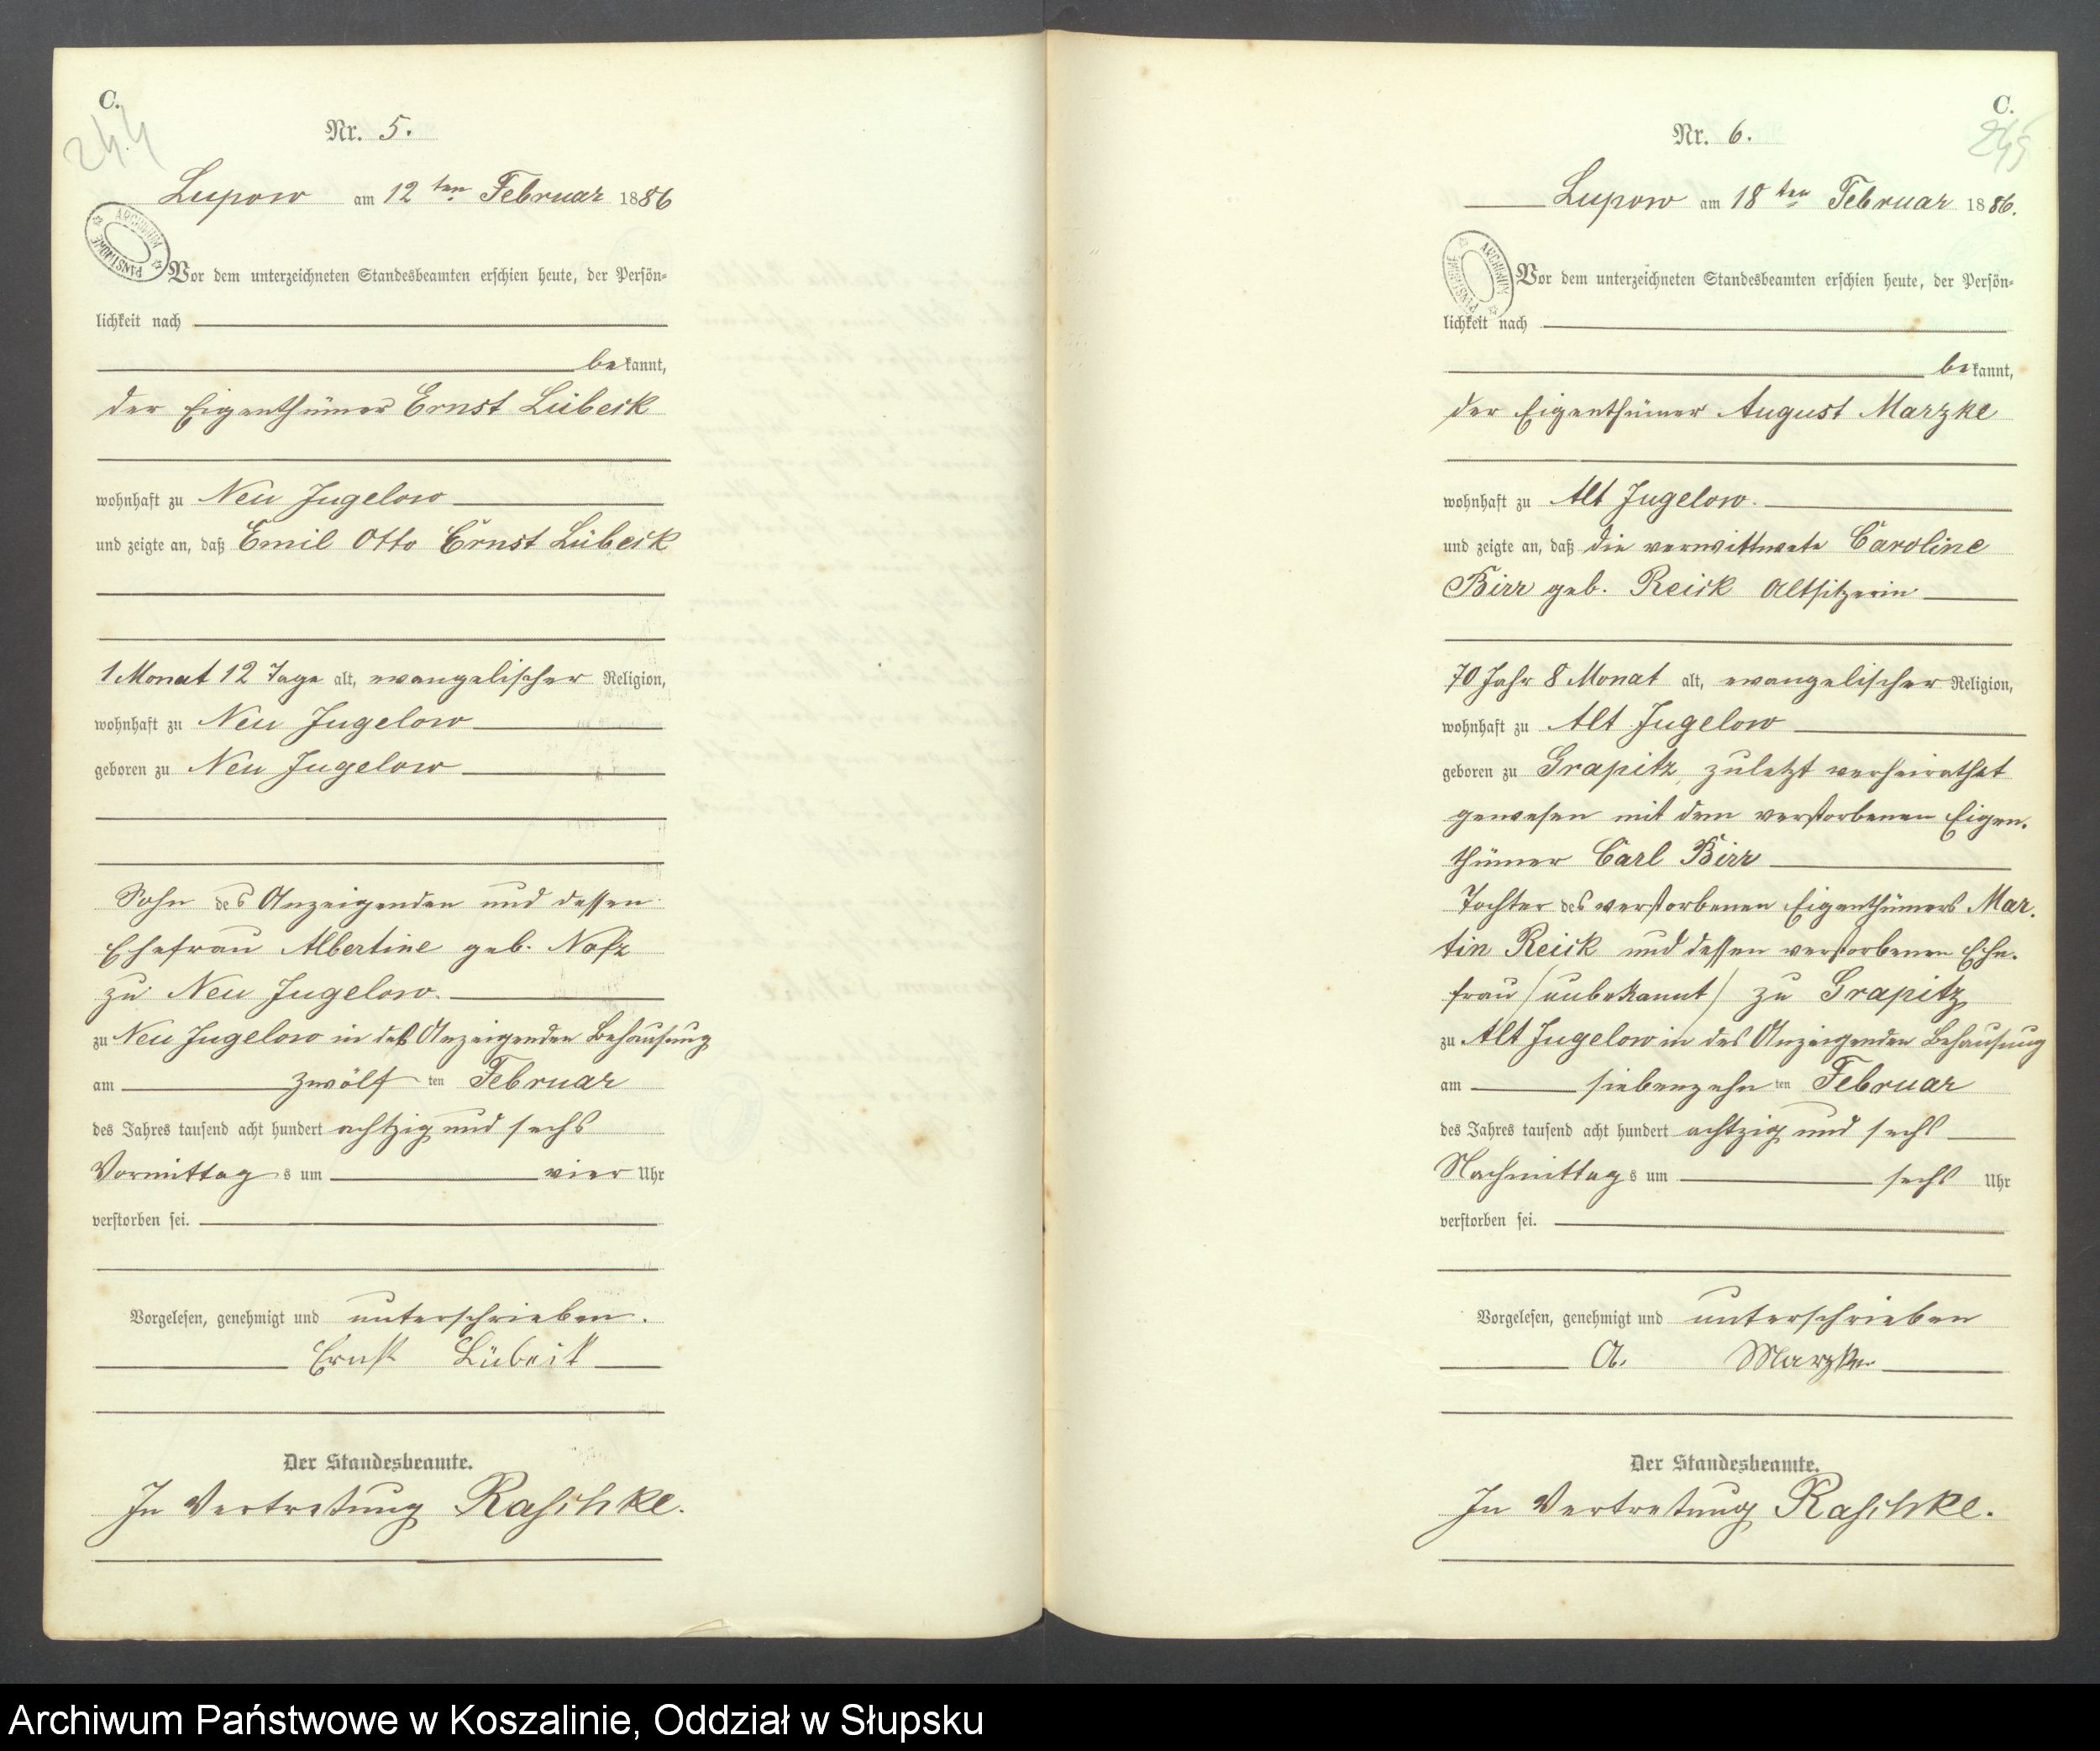 C.
244
Nr. 5.
Lupow am 12 ten Februar 1886
ARCHIWUM PAŃSTWOWE
Vor dem unterzeichneten Standesbeamten erschien heute, der Persön-
lichkeit nach
bekannt,
der Eigenthümer Ernst Lübeck
wohnhaft zu Neu Jugelow
und zeigte an, daß Emil Otto Ernst Lübeck
1 Monat 12 Tage alt, evangelischer Religion,
wohnhaft zu Neu Jugelow
geboren zu Neu Jugelow
Sohn des Anzeigenden und dessen
Ehefrau Albertine geb. Nofz
zu Neu Jugelow.
zu Neu Jugelow in des Anzeigenden Behausung
am zwölf ten Februar
des Jahres tausend acht hundert achtzig und sechs
Vormittag s um vier Uhr
verstorben sei.
Vorgelesen, genehmigt und unterschrieben.
Ernst Lübeck
Der Standesbeamte.
In Vertretung Raschke.
C.
245
Nr. 6.
Lupow am 18 ten Februar 1886.
ARCHIWUM PAŃSTWOWE
Vor dem unterzeichneten Standesbeamten erschien heute, der Persön-
lichkeit nach
bekannt,
der Eigenthümer August Marzke
wohnhaft zu Alt Jugelow.
und zeigte an, daß die verwittwete Caroline
Birr geb. Reick Altsitzerin
70 Jahr 8 Monat alt, evangelischer Religion,
wohnhaft zu Alt Jugelow
geboren zu Grapitz, zuletzt verheirathet
gewesen mit dem verstorbenen Eigen-
thümer Carl Birr
Tochter des verstorbenen Eigenthümers Mar-
tin Reick und dessen verstorbenen Ehe-
frau /unbekannt/ zu Grapitz
zu Alt Jugelow in des Anzeigenden Behausung
am siebenzehn ten Februar
des Jahres tausend acht hundert achtzig und sechs
Nachmittag s um sechs Uhr
verstorben sei.
Vorgelesen, genehmigt und unterschrieben
A. Marzke
Der Standesbeamte.
In Vertretung Raschke.
Archiwum Państwowe w Koszalinie, Oddział w Słupsku